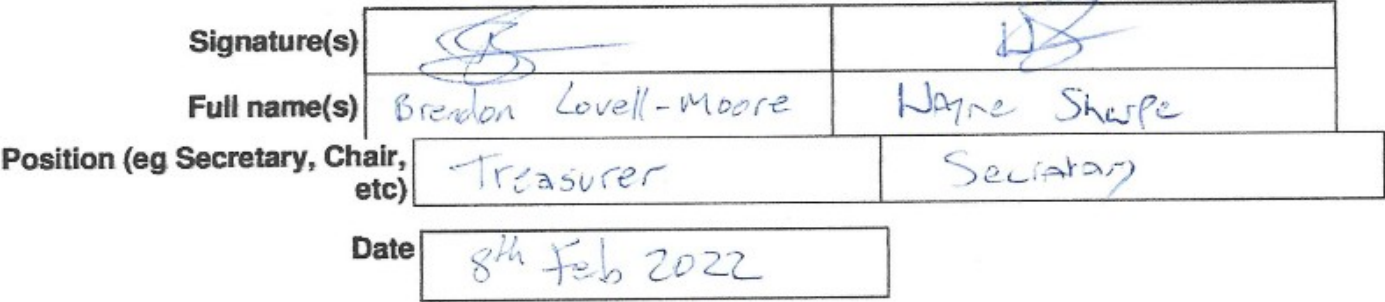 Signature(s)
Full name(s) Brendon Lovell-Moore Wayne Sharpe
Position (eg Secretary, Chair,
etc) Treasurer Secratary
Date 8th Feb 2022